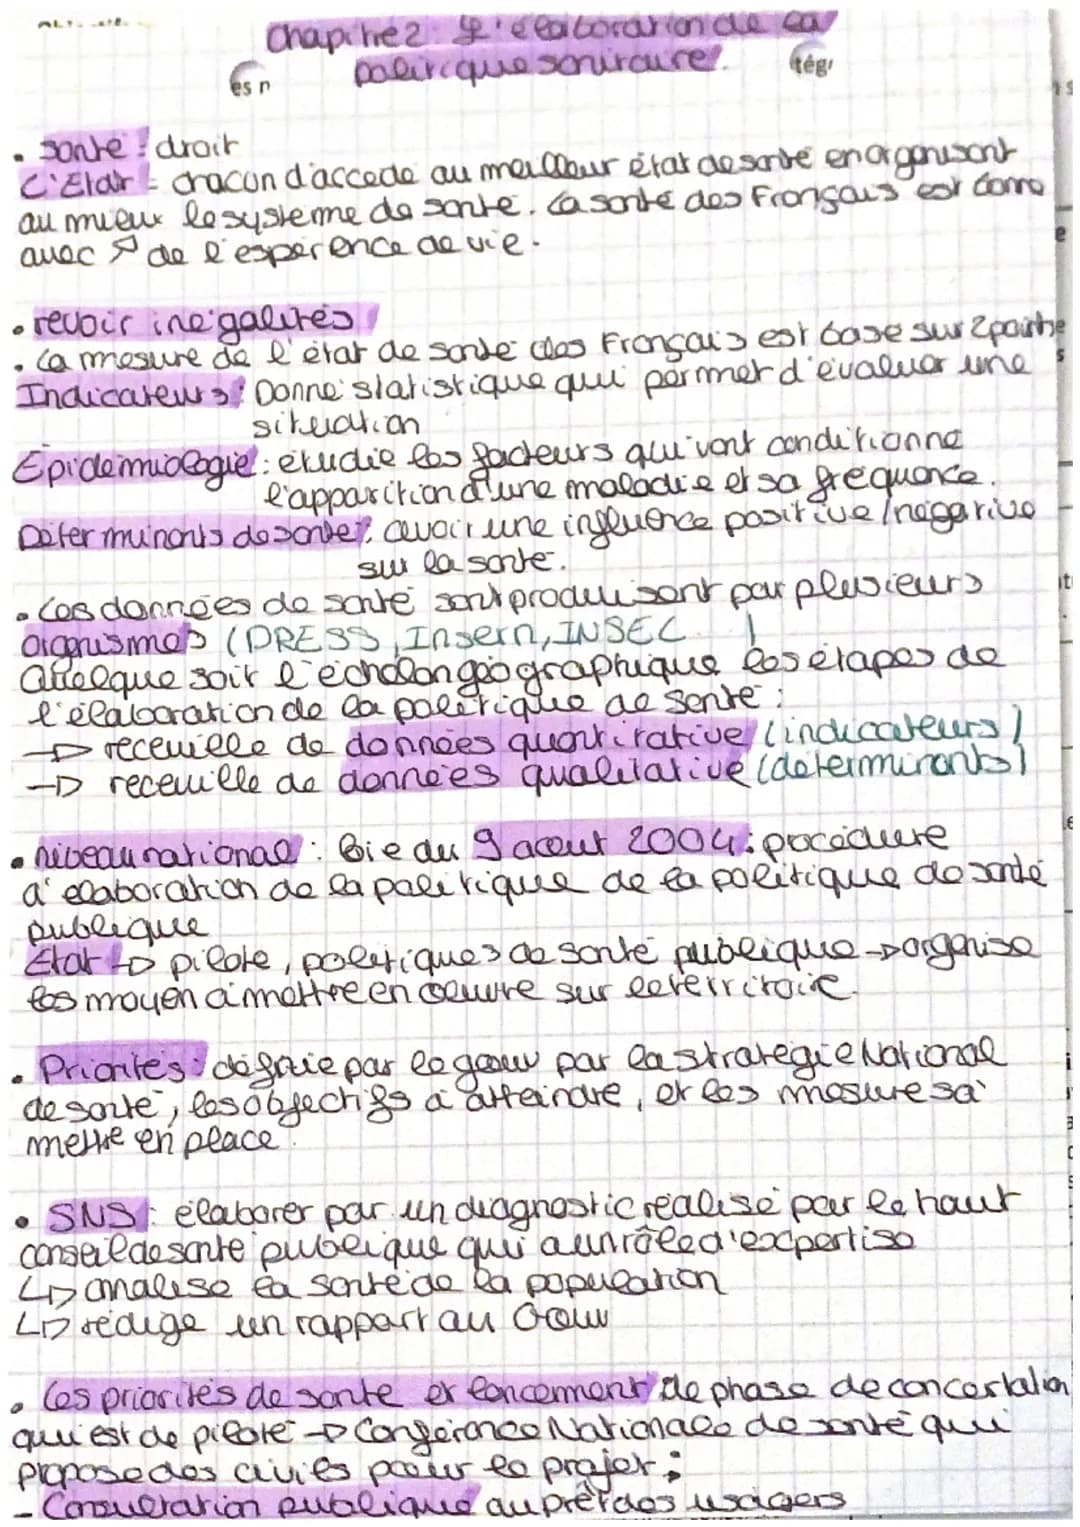 Chapitre 2 : L'élaboration de la
politique sanitaire.
tégr
es n
• Santé : droit
L'Etat = chacun d'accede au meilleur état de santé en organisant
au mieux le systeme de santé. La santé des Français est bonne
avec ↗ de l'espérence de vie.
• revoir inégalités
• La mesure de l'état de santé des Français est base sur 2 pointe
Indicateurs : Donné statistique qui permet d'évaluer une
situation
Epidémiologie : étudie les facteurs qui vont conditionne
l'apparition d'une maladie et sa frequence.
Déterminants de santé : avoir une influence positive/négative
sur la santé.
• Les données de santé sont produisent par plusieurs
organismes (DRESS, Insern, INSEC...)
Quelque soit l'échelon géographique les étapes de
l'élaboration de la politique de santé :
→ receuille de données quantitative (indicateurs)
→ receuille de données qualitative (déterminants)
• niveau national : loie du 9 aout 2004 : procedure
d'elaboration de la politique de la politique de santé
publique
Etat ↳ pilote, politiques de santé publique → organise
les moyen à mettre en oeuvre sur le territoire.
• Priorités : définie par le gouv par la strategie National
de santé, les objectifs à atteindre, et les mesure sà
mettre en place.
• SNS : élaborer par un diagnostic réalisé par le haut
conseil de santé publique qui a un rôle d'expertise
↳ analise la santé de la population
↳ rédige un rapport au Gouv
• Les priorités de santé et lancement de phase de concertation
qui est de piloté → Conférence Nationale de santé qui
propose des aviés pour le projet :
- Consultation publique auprêt des usagers